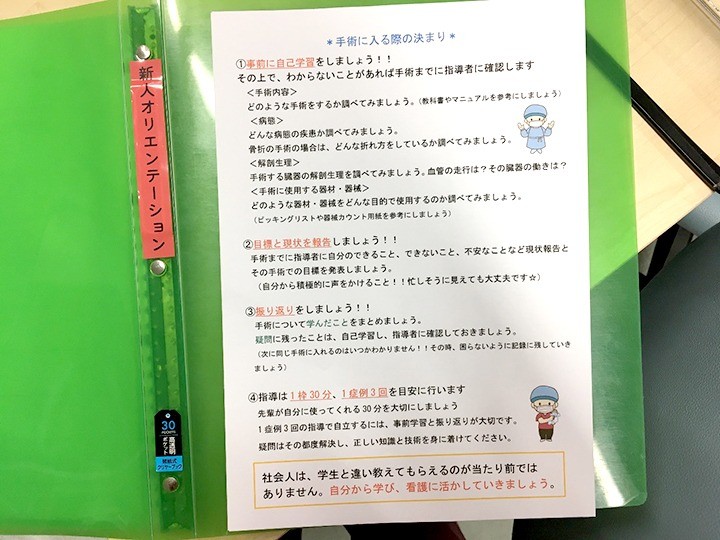 新人オリエンテーション
30
POCKETS
高透明
ポケット
クリヤーブック
＊手術に入る際の決まり＊
①事前に自己学習をしましょう！！
その上で、わからないことがあれば手術までに指導者に確認します
＜手術内容＞
どのような手術をするか調べてみましょう。（教科書やマニュアルを参考にしましょう）
＜病態＞
どんな病態の疾患か調べてみましょう。
骨折の手術の場合は、どんな折れ方をしているか調べてみましょう。
＜解剖生理＞
手術する臓器の解剖生理を調べてみましょう。血管の走行は？その臓器の働きは？
＜手術に使用する器材・器械＞
どのような器材・器械をどんな目的で使用するのか調べてみましょう。
（ピッキングリストや器械カウント用紙を参考にしましょう）
②目標と現状を報告しましょう！！
手術までに指導者に自分のできること、できないこと、不安なことなど現状報告と
その手術での目標を発表しましょう。
（自分から積極的に声をかけること！！忙しそうに見えても大丈夫です☆）
③振り返りをしましょう！！
手術について学んだことをまとめましょう。
疑問に残ったことは、自己学習し、指導者に確認しておきましょう。
（次に同じ手術に入れるのはいつかわかりません！！その時、困らないように記録に残していき
ましょう）
④指導は１枠30分、１症例３回を目安に行います
先輩が自分に使ってくれる30分を大切にしましょう
１症例３回の指導で自立するには、事前学習と振り返りが大切です。
疑問はその都度解決し、正しい知識と技術を身に着けてください。
社会人は、学生と違い教えてもらえるのが当たり前では
ありません。自分から学び、看護に活かしていきましょう。